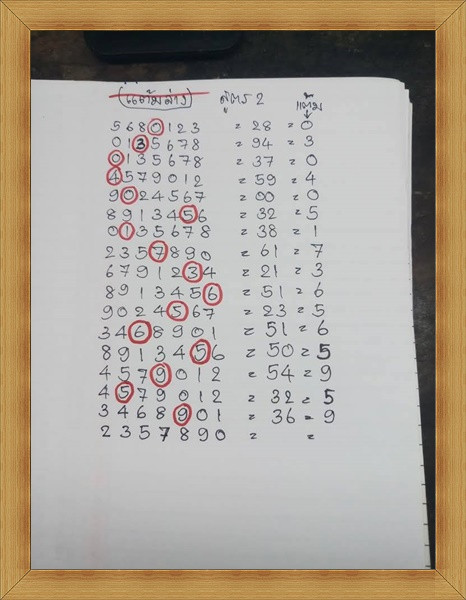 (แต้มล่าง) สูตร 2 แต้ม
5680123 = 28 = 0
0135678 = 94 = 3
0135678 = 37 = 0
4579012 = 59 = 4
9024567 = 00 = 0
8913456 = 32 = 5
0135678 = 38 = 1
2357890 = 61 = 7
6791234 = 21 = 3
8913456 = 51 = 6
9024567 = 23 = 5
3468901 = 51 = 6
8913456 = 50 = 5
4579012 = 54 = 9
4579012 = 32 = 5
3468901 = 36 = 9
2357890 = =